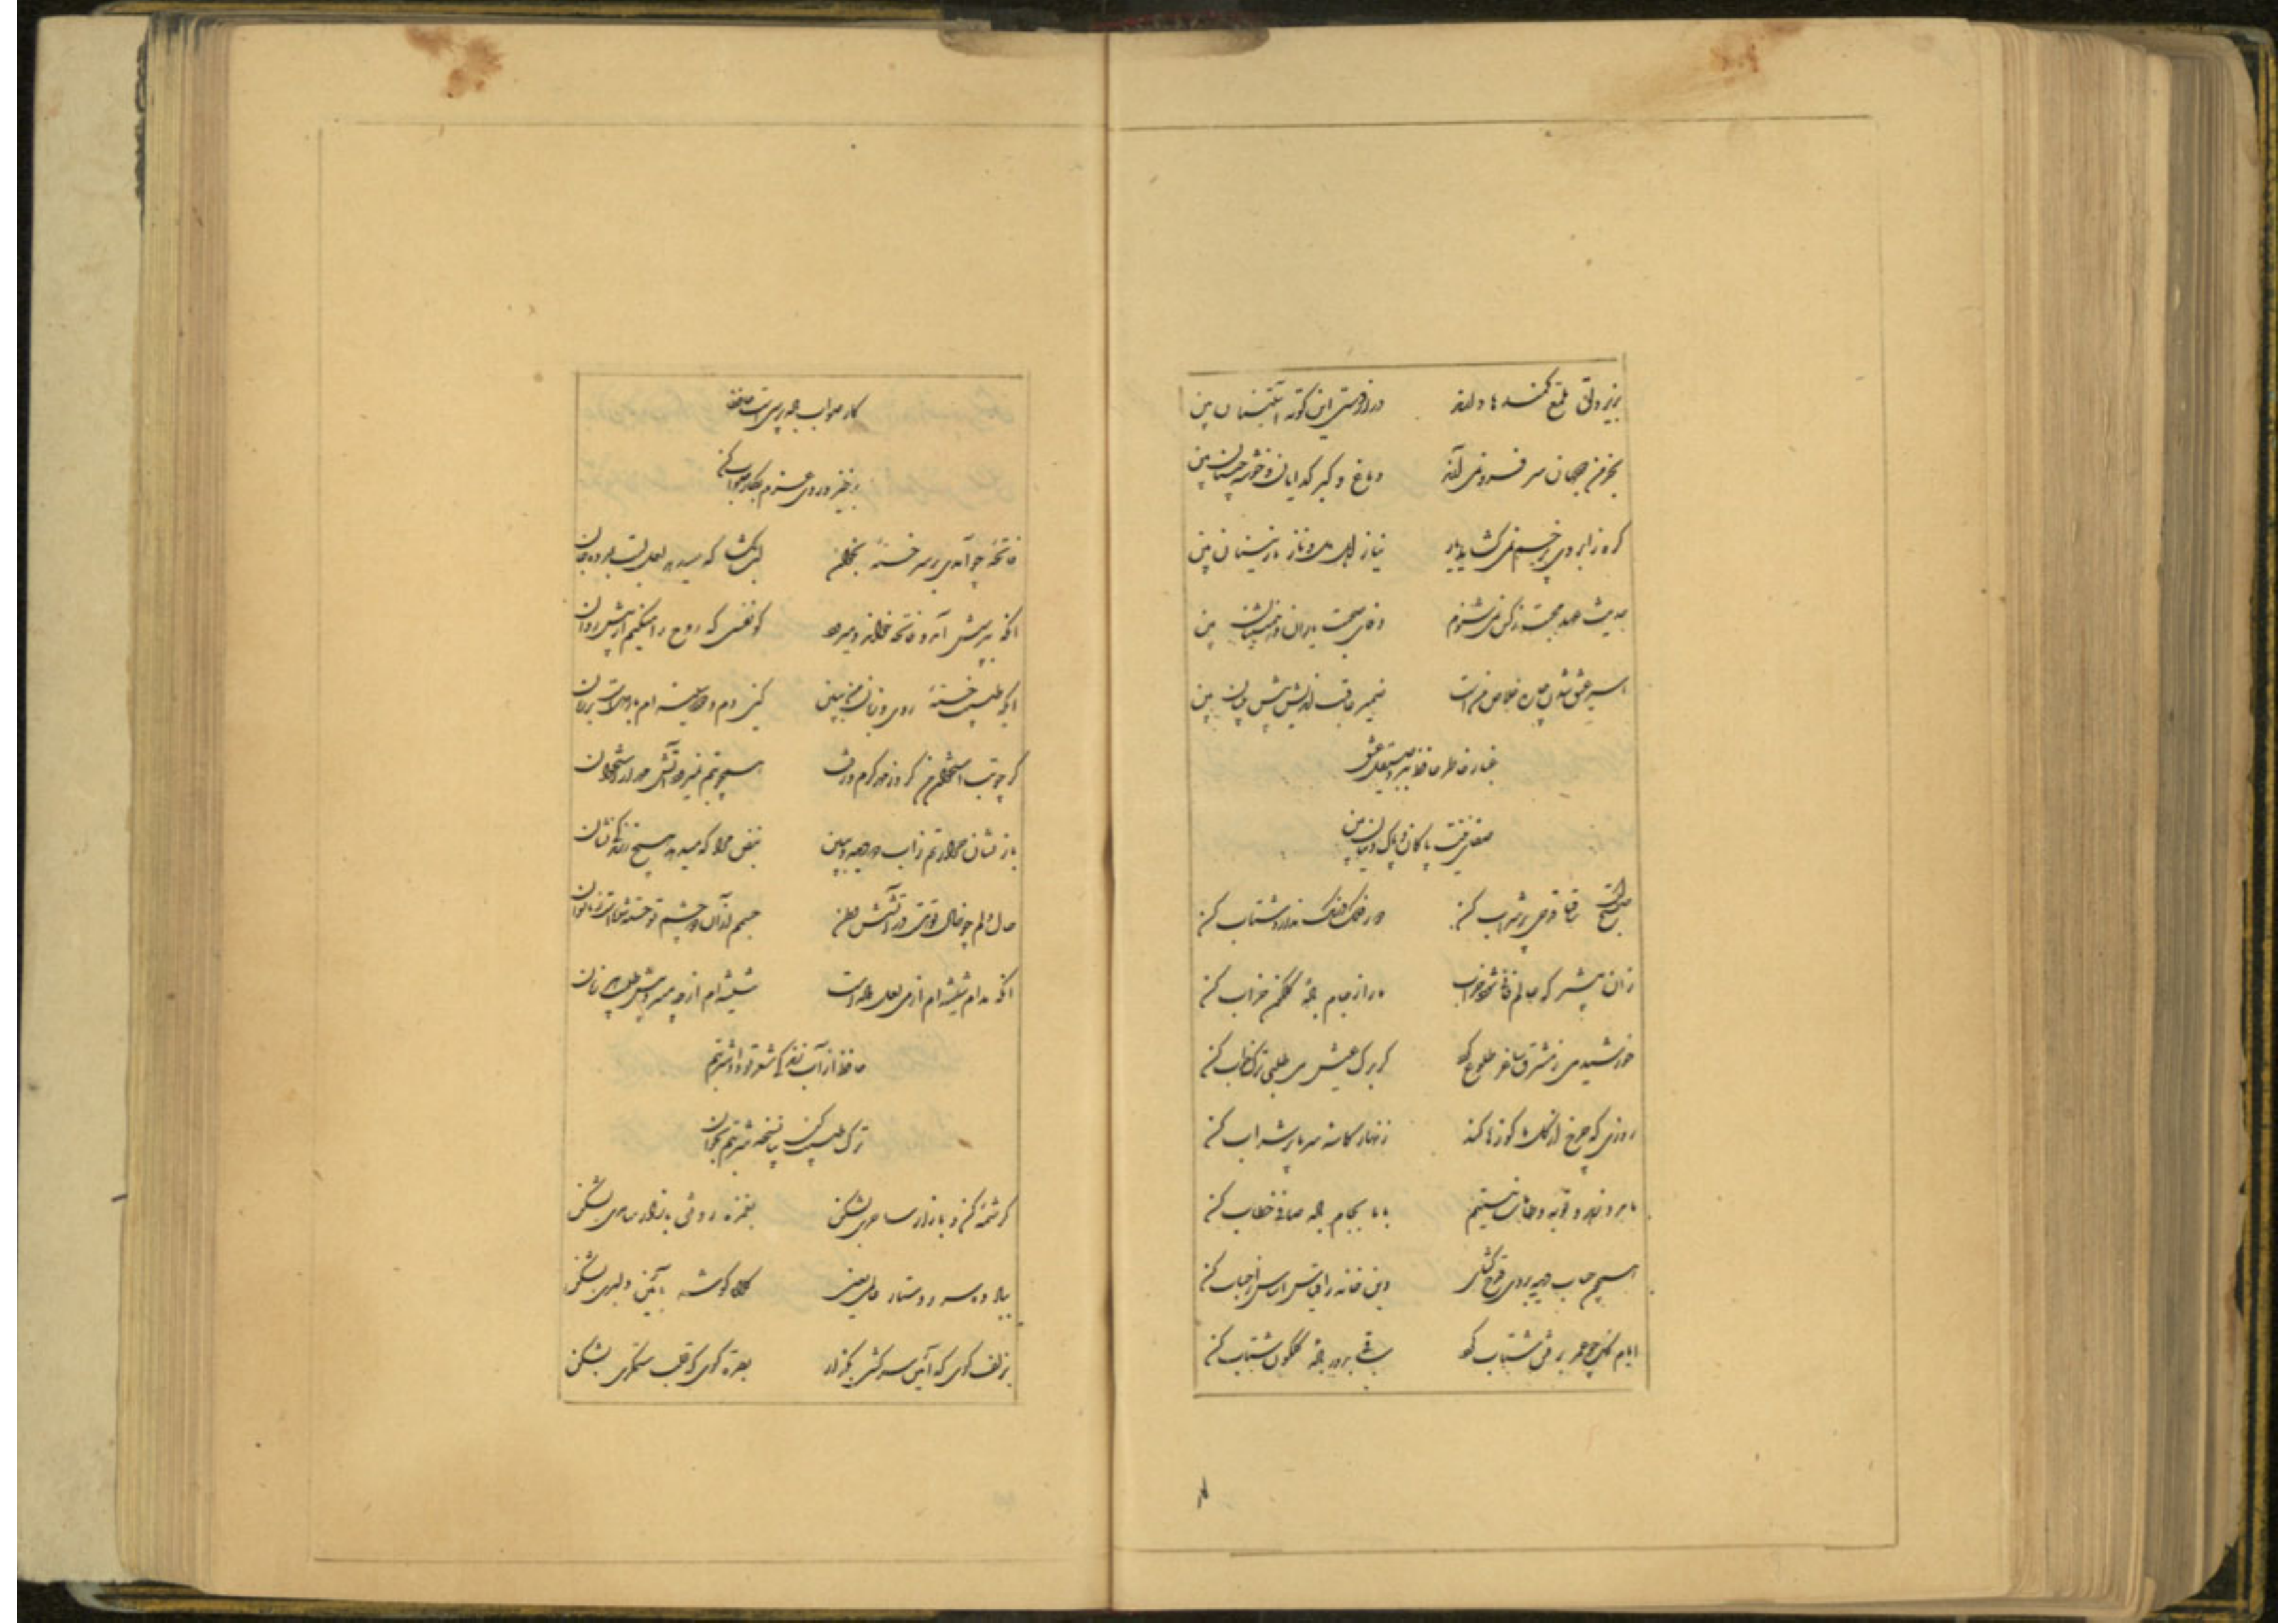 بزیر دلق ملمع کمندها دارند درازدستی این کوته آستینان بین
بخرمن جهان سر فرو نمی آرند دماغ و کبر کدایان و خوشه چینان بین
کره ز ابروی پرچین نمی کشاید یار نیاز اهل دل و ناز نازنینان بین
حدیث عهد محبت ز کس نمی شنوم وفای صحبت یاران و همنشینان بین
اسیر عشق شدن چاره خلاص منست ضمیر عاقبت اندیش پیش بینان بین
غبار خاطر حافظ ببرد صیقل عشق
صفای نیت پاکان و پاک دینان بین
صبحست ساقیا قدحی پر شراب کن دور فلک درنک ندارد شتاب کن
زان پیشتر که عالم فانی شود خراب ما را ز جام باده کلکون خراب کن
خورشید می ز مشرق ساغر طلوع کرد کر برک عیش می طلبی ترک خواب کن
روزی که چرخ از کل ما کوزها کند زنهار کاسه سر ما پر شراب کن
ما مرد زهد و توبه و طامات نیستیم با ما بجام باده صافی خطاب کن
همچون حباب دیده بروی قدح کشای وین خانه را قیاس اساس از حباب کن
ایام کل چو عمر برفتن شتاب کرد ساقی بدور باده کلکون شتاب کن
کار صواب باده پرستیست حافظا
برخیز و روی عزم بکار صواب کن
فاتحه چو آمدی بر سر خسته بخوان لب بکشا که میدهد لعل لبت بمرده جان
آنکه بپرسش آمد و فاتحه خواند و میرود کو نفسی که روح را میکنم از پیش روان
ایکه طبیب خسته روی و زبان من ببین کین دم و دود سینه ام بار دلست بر زبان
کرچه تب استخوان من کرد ز مهر کرم و رفت همچو تبم نمیرود آتش مهر از استخوان
باز نشان حرارتم ز آب دو دیده و ببین نبض مرا که میدهد هیچ ز زندکی نشان
حال دلم چو خال تو هست در آتشش وطن جسم از آن دو چشم تو خسته شدست و ناتوان
آنکه مدام شیشه ام از می لعل داده است شیشه ام از چه میبرد پیش طبیب هر زمان
حافظ از آب زندکی شعر تو داد شربتم
ترک طبیب کن بیا نسخه شربتم بخوان
کرشمه کن و بازار ساحری بشکن بغمزه رونق بازار سامری بشکن
بباد ده سر و دستار عالمی یعنی کلاه کوشه بآیین دلبری بشکن
بزلف کوی که آیین سرکشی بگذار بغمزه کوی که قلب ستمکری بشکن